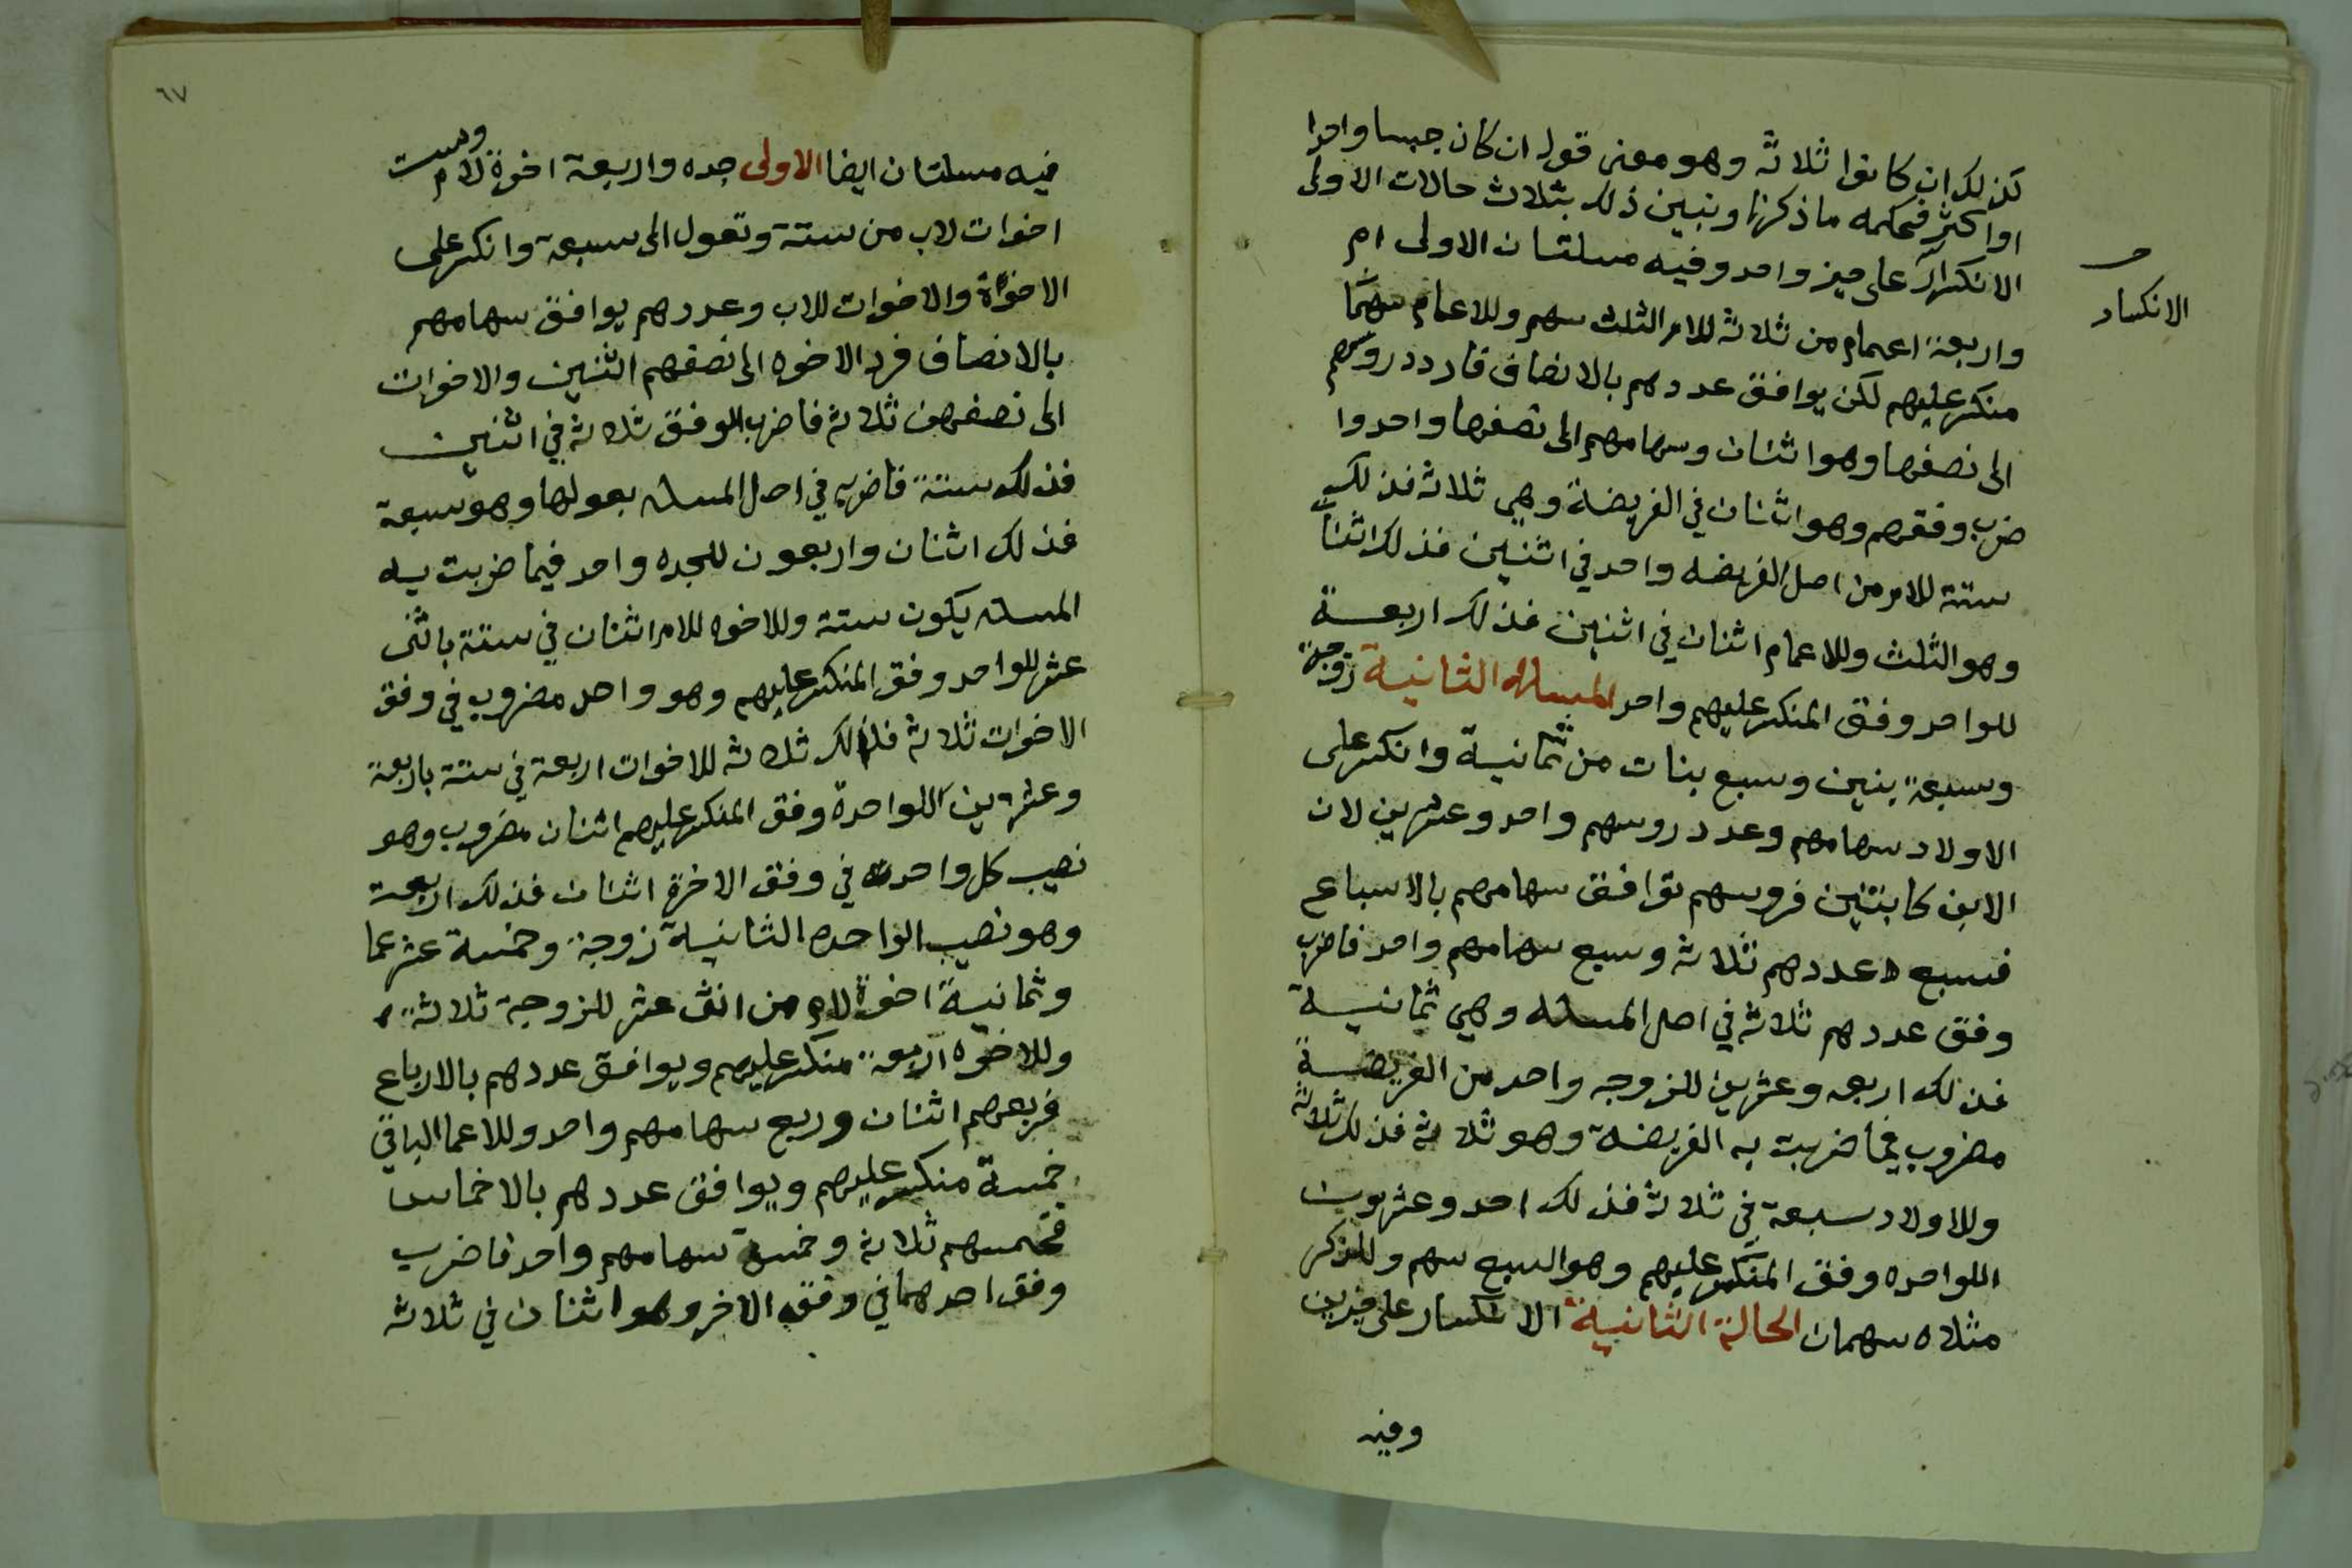 كذلك ان كانوا ثلاثة وهو معنى قوله ان كان جنسا واحدا
او اكثر فحكمه ما ذكرنا ونبين ذلك بثلاث حالات الاولى
الانكسار على حيز واحد وفيه مسلتان الاولى ام
الانكسار
واربعة اعمام من ثلاثة للام الثلث سهم وللاعمام سهما
منكسر عليهم لكن يوافق عددهم بالانصاف فاردد روسهم
الى نصفها وهو اثنان وسهامهم الى نصفها واحد وا
ضرب وفقهم وهو اثنان في الفريضة وهي ثلاثة فذلك
ستة للام من اصل الفريضه واحد في اثنين فذلك اثنان
وهو الثلث وللاعمام اثنان في اثنين فذلك اربعة
للواحد وفق المنكسر عليهم واحد المسله الثانية زوجة
وسبعة بنين وسبع بنات من ثمانية وانكسر على
الاولاد سهامهم وعدد روسهم واحد وعشرين لان
الابن كابنتين فروسهم توافق سهامهم بالاسباع
فسبع عددهم ثلاثة وسبع سهامهم واحد فاضرب
وفق عددهم ثلاثة في اصل المسله وهي ثمانية
فذلك اربعه وعشرين للزوجه واحد من الفريضة
مضروب فيما ضربت به الفريضة وهو ثلاثة فذلك ثلاثة
وللاولاد سبعة في ثلاثة فذلك احد وعشرون
اللواحده وفق المنكسر عليهم وهو السبع سهم وللذكر
مثلاه سهمان الحالة الثانية الانكسار على حيزين
وفيه
٦٧
فيه مسلتان ايضا الاولى جده واربعة اخوة لام وست
اخوات لاب من ستة وتعول الى سبعة وانكسر على
الاخوة والاخوات للاب وعددهم يوافق سهامهم
بالانصاف فرد الاخوه الى نصفهم اثنين والاخوات
الى نصفهن ثلاثة فاضرب الوفق ثلاثة في اثنين
فذلك ستة فاضربه في اصل المسله بعولها وهو سبعة
فذلك اثنان واربعون للجده واحد فيما ضربت به
المسله يكون ستة وللاخوه للام اثنان في ستة باثنى
عشر للواحد وفق المنكسر عليهم وهو واحد مضروب في وفق
الاخوات ثلاثة فذلك ثلاثة للاخوات اربعة في ستة باربعة
وعشرين اللواحدة وفق المنكسر عليهم اثنان مضروب وهو
نصيب كل واحدة في وفق الاخرة اثنان فذلك اربعة
وهو نصيب الواحده الثانية زوجة وخمسة عشر عما
وثمانية اخوة لام من اثنى عشر للزوجة ثلاثة
وللاخوه اربعة منكسر عليهم ويوافق عددهم بالارباع
فربعهم اثنان وربع سهامهم واحد وللاعما الباقي
خمسة منكسر عليهم ويوافق عددهم بالاخماس
فخمسهم ثلاثة وخمس سهامهم واحد فاضرب
وفق احدهما في وفق الاخر وهو اثنان في ثلاثة